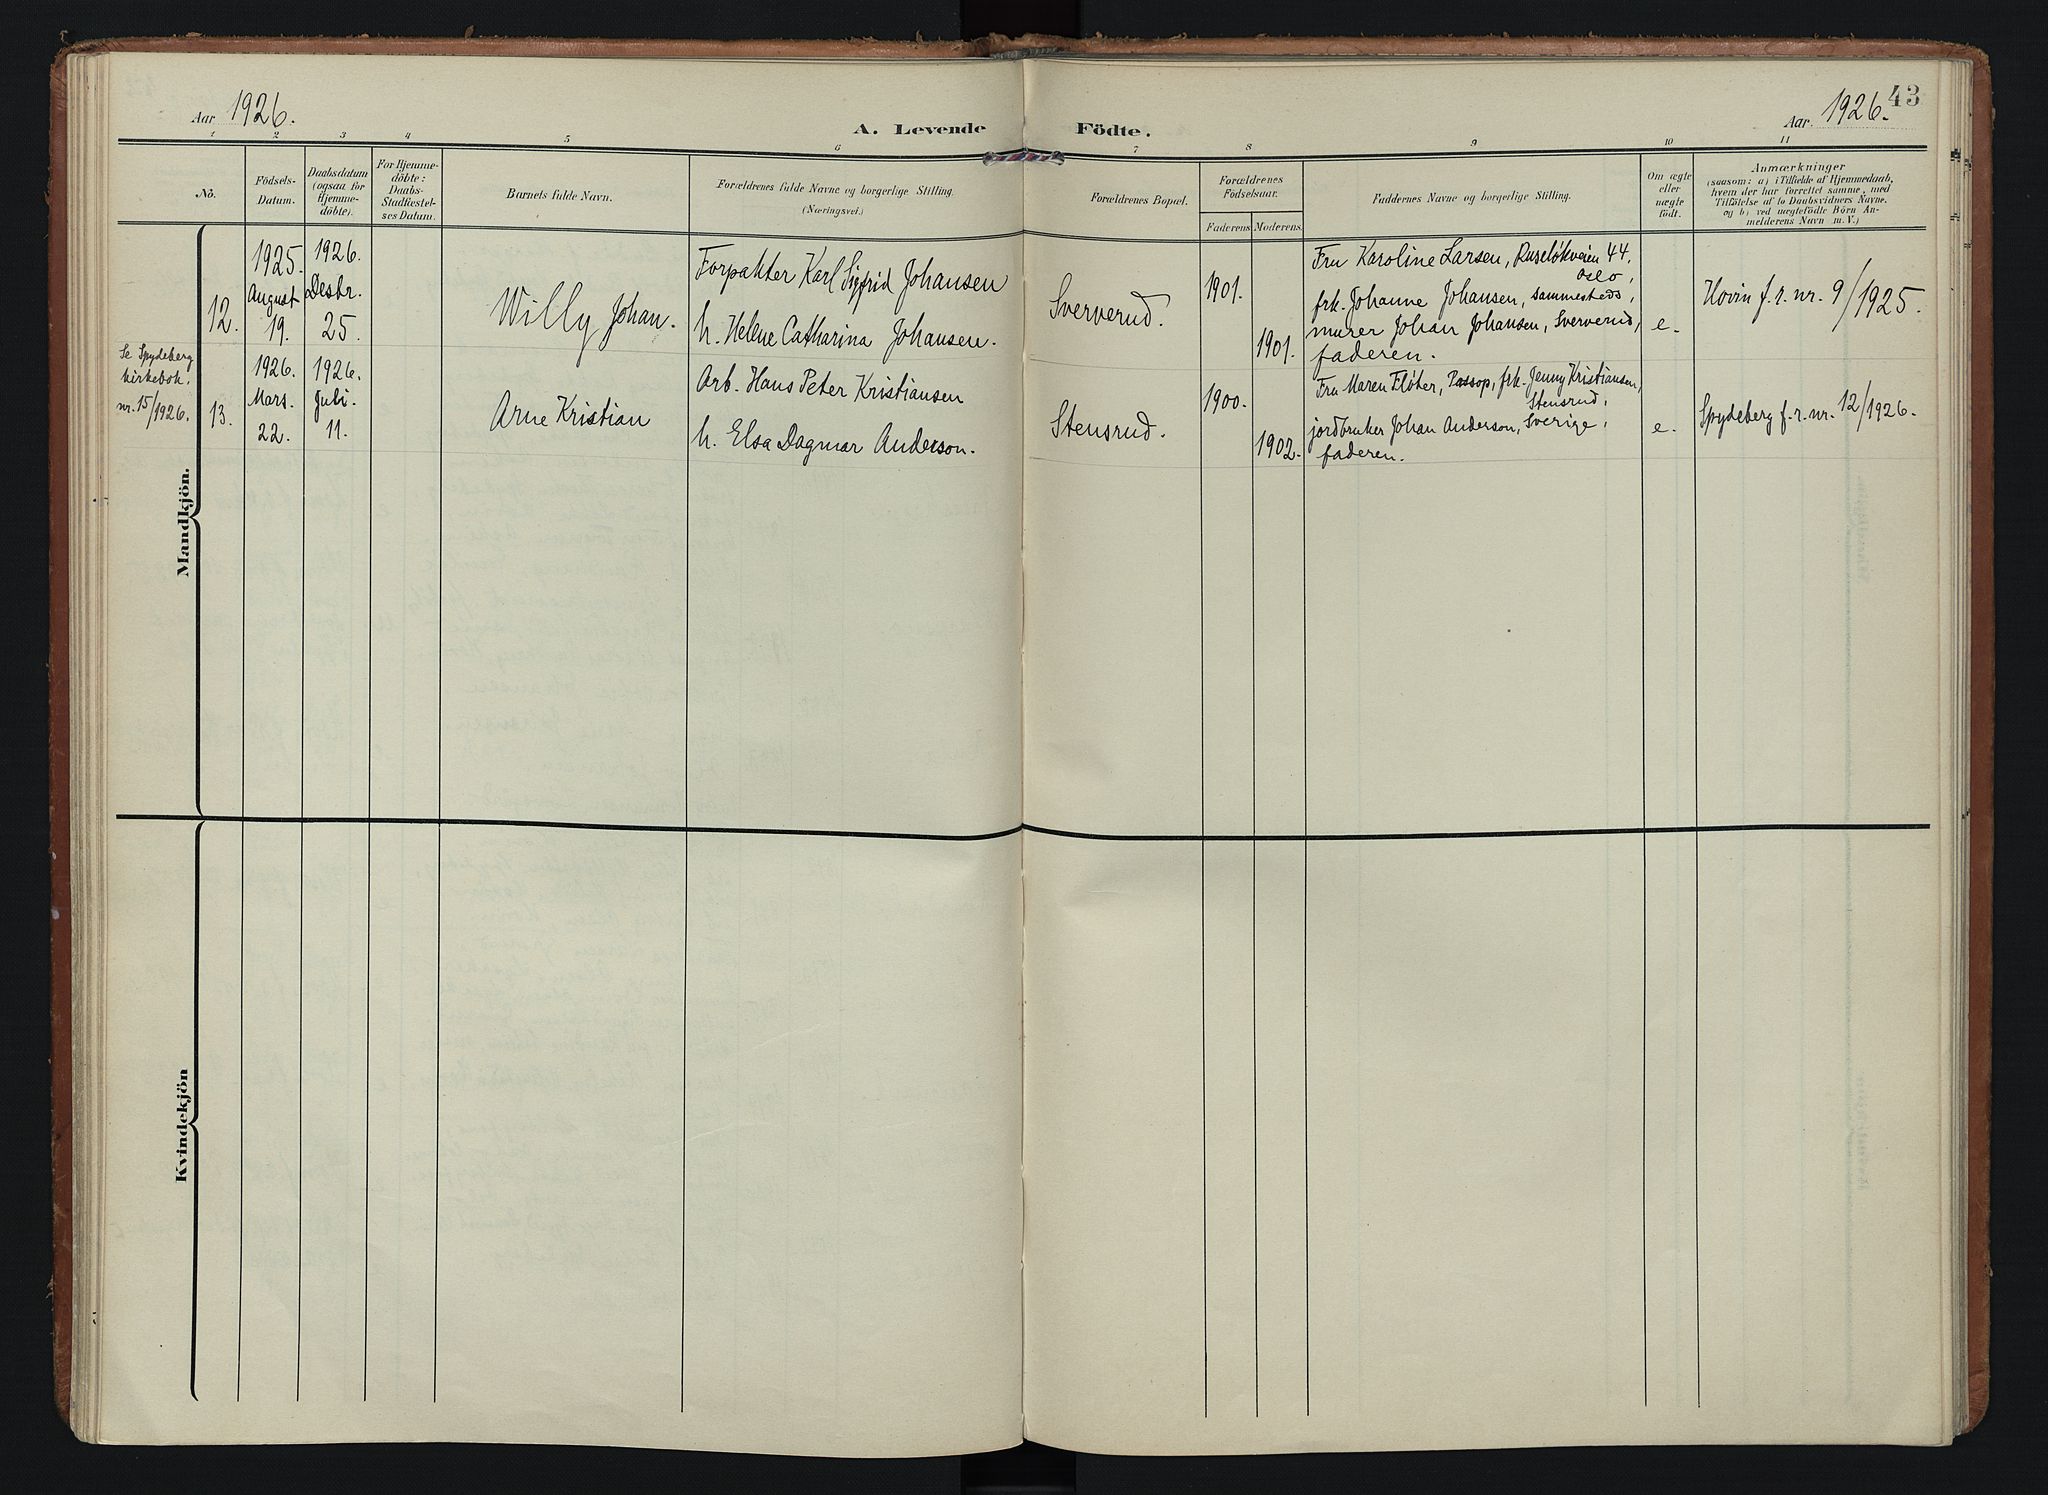 Aar 1926.
A. Levende Födte.
Aar. 1926.
43
1 2 3 4 5 6 7 8 9 10 11
No.
Födsels-
Datum.
Daabsdatum
(ogsaa for
Hjemme-
döbte).
For Hjemme-
döbte:
Daabs-
Stadfæstel-
ses Datum.
Barnets fulde Navn.
Forældrenes fulde Navne og borgerlige Stilling.
(Næringsvei.)
Forældrenes Bopæl.
Forældrenes
Födselsaar.
Faderens. Moderens.
Faddernes Navne og borgerlige Stilling.
Om ægte
eller
uægte
født.
Anmærkninger
(saasom: a) i Tilfælde af Hjemmedaab,
hvem der har forrettet samme, med
Tilföielse af to Daabsvidners Navne,
og b) ved uægtefödte Börn An-
melderens Navn m. V.)
Mandkjön.
12.
1925.
August
19.
1926.
Desbr.
25.
Willy Johan.
Forpakter Karl Sigfrid Johansen
h. Helene Catharina Johansen.
Sververud.
1901.
1901.
Fru Karoline Larsen, Ruseløkveien 44.
Oslo,
frk. Johanne Johansen, sammesteds,
murer Johan Johansen, Sververud,
faderen.
e.
Hovin f.r.nr. 9/1925.
Se Spydeberg
kirkebok.
nr. 15/1926.
13.
1926.
Mars.
22.
1926.
Juli.
11.
Arne Kristian
Arb. Hans Peter Kristiansen
h. Elsa Dagmar Anderson.
Stensrud.
1900.
1902.
Fru Maren Fløter, Passop, frk. Jenny Kristiansen,
Stensrud,
jordbruker Johan Anderson, Sverige,
faderen.
e.
Spydeberg f.r.nr. 12/1926.
Kvindekjön